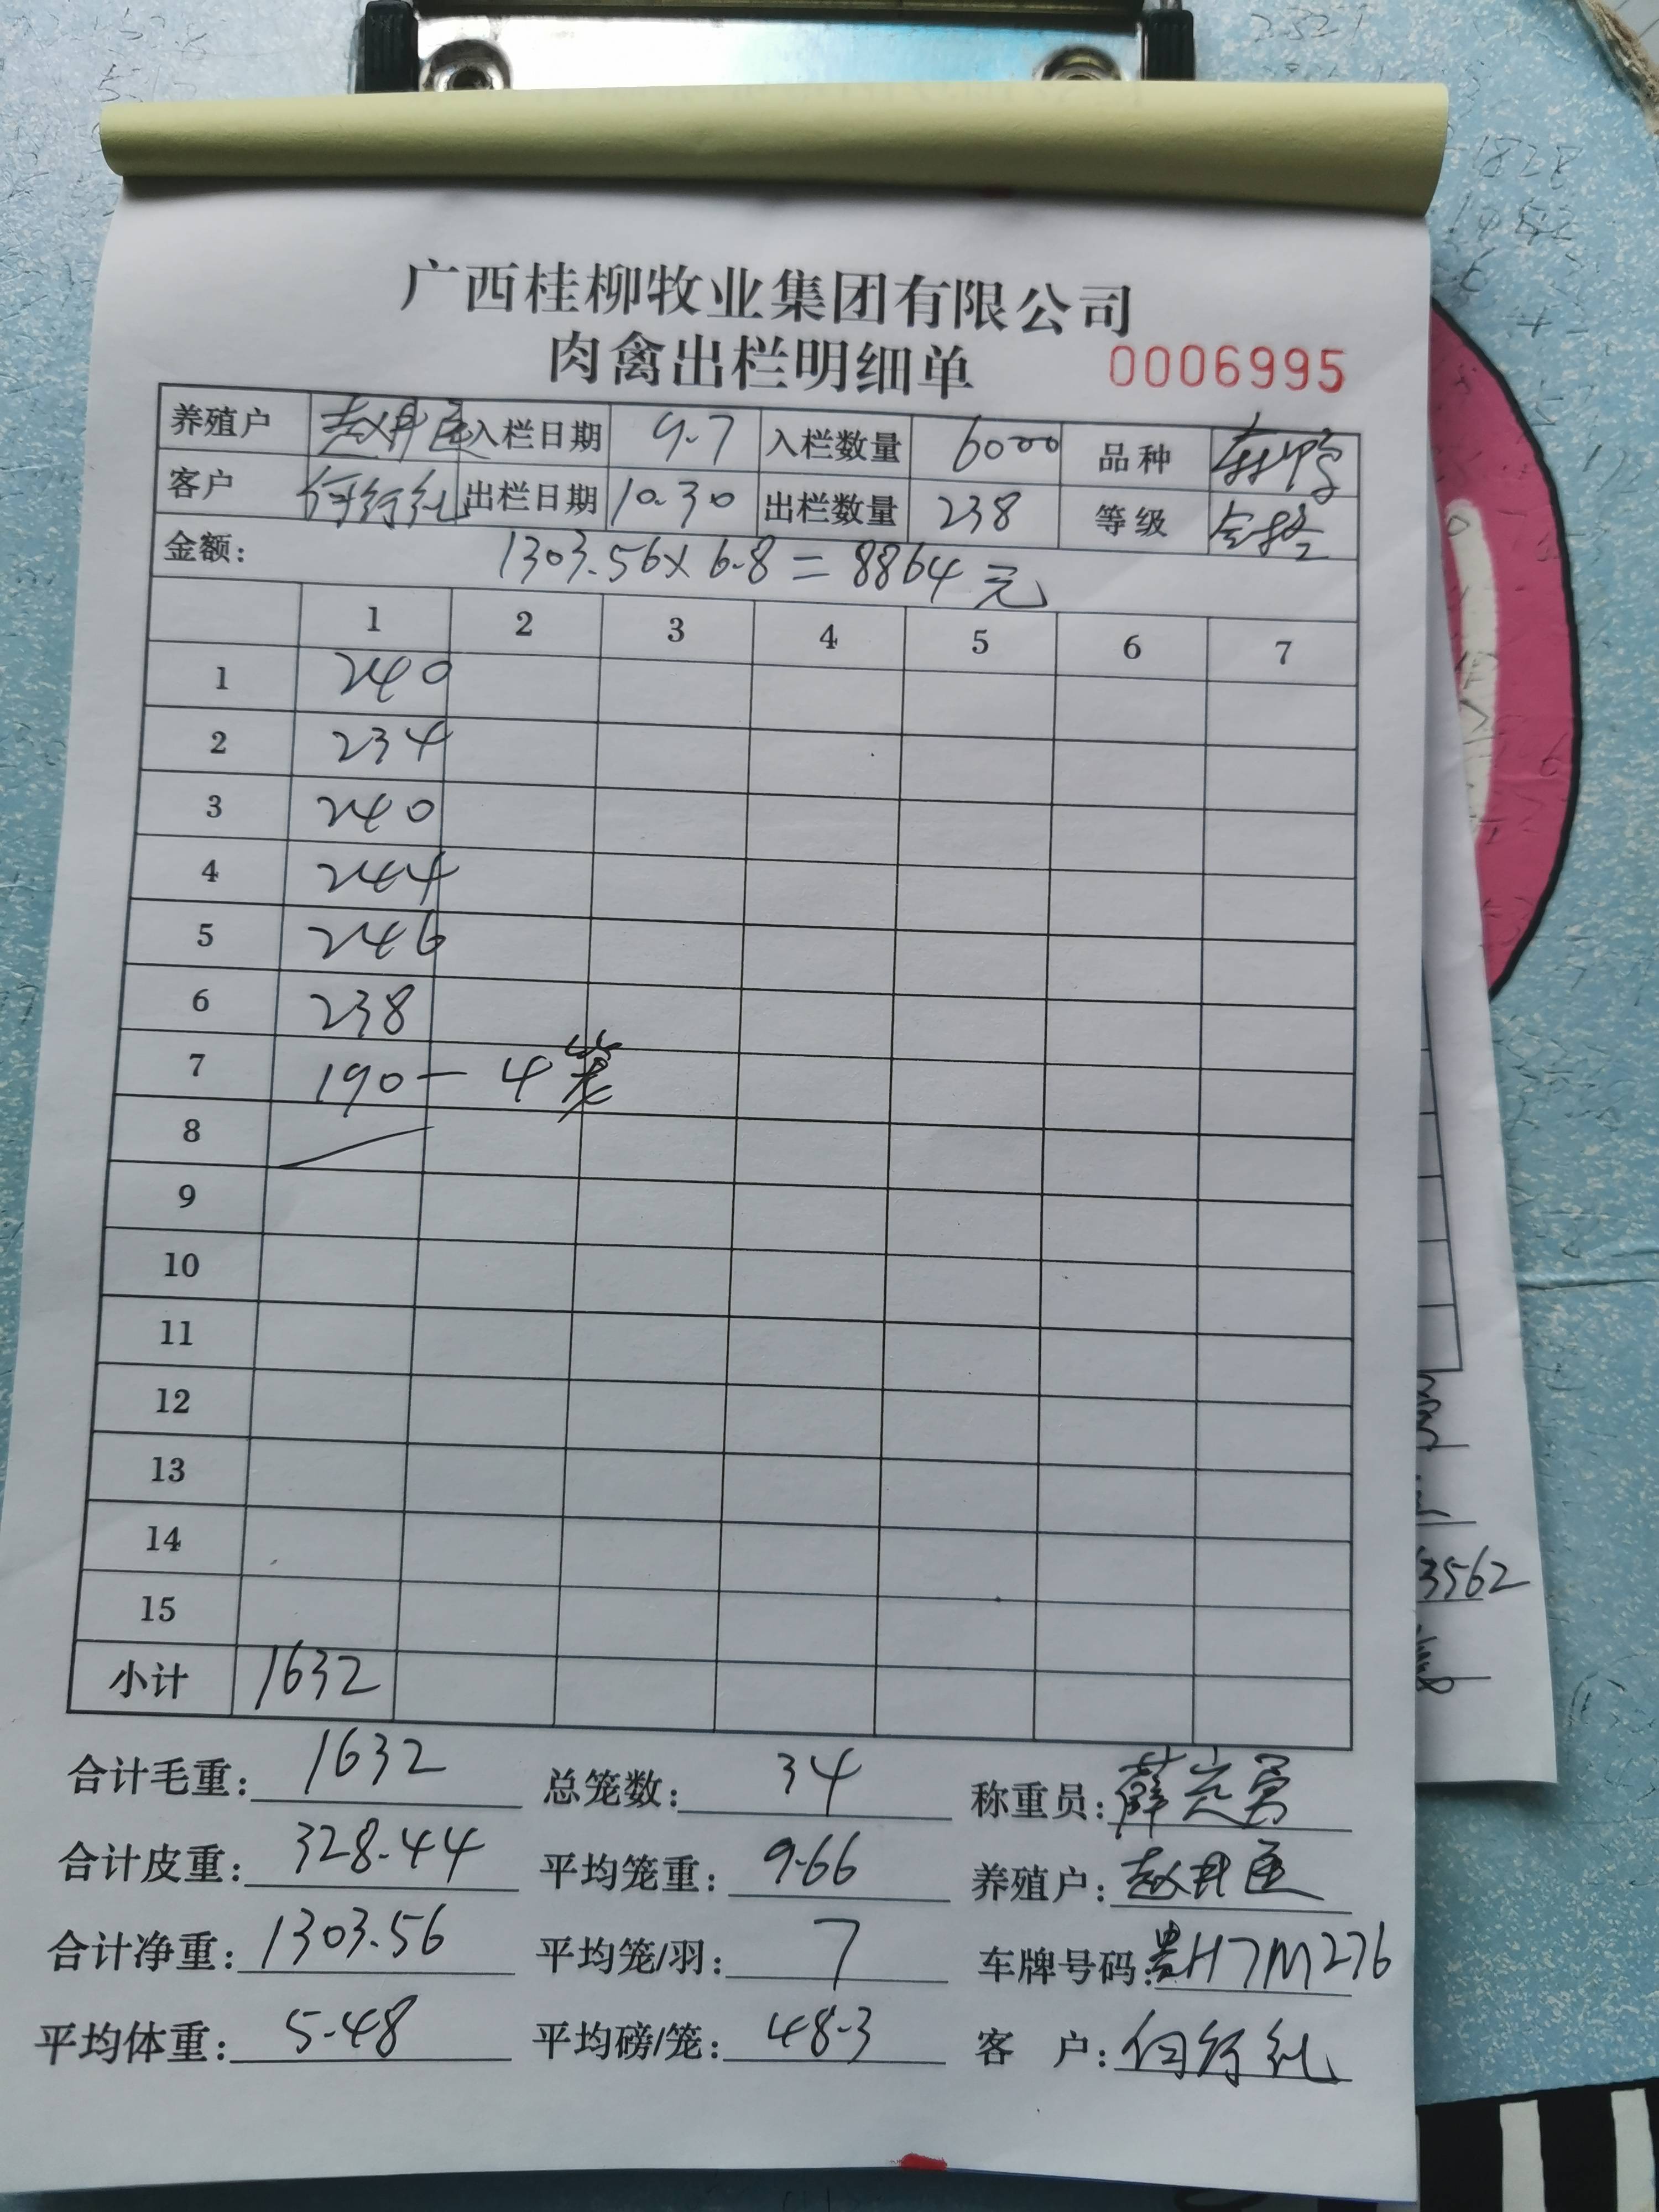 广西桂柳牧业集团有限公司
肉禽出栏明细单 0006995
养殖户 赵开医 入栏日期 9.7 入栏数量 6000 品种
客户 何行礼 出栏日期 10.30 出栏数量 238 等级
金额: 1303.56×6.8=8864元
1 2 3 4 5 6 7
1 240
2 234
3 240
4 244
5 246
6 238
7 190－4笼
8
9
10
11
12
13
14
15
小计 1632
合计毛重: 1632 总笼数: 34 称重员: 薛
合计皮重: 328.44 平均笼重: 9.66 养殖户: 赵开医
合计净重: 1303.56 平均笼/羽: 7 车牌号码: 贵H7M276
平均体重: 5.48 平均磅/笼: 48.3 客 户: 何行礼
3562